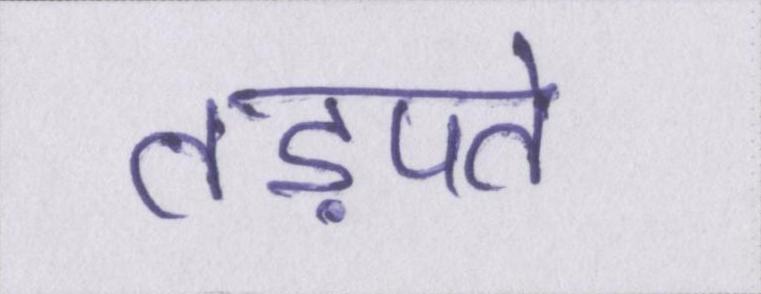 तड़पते